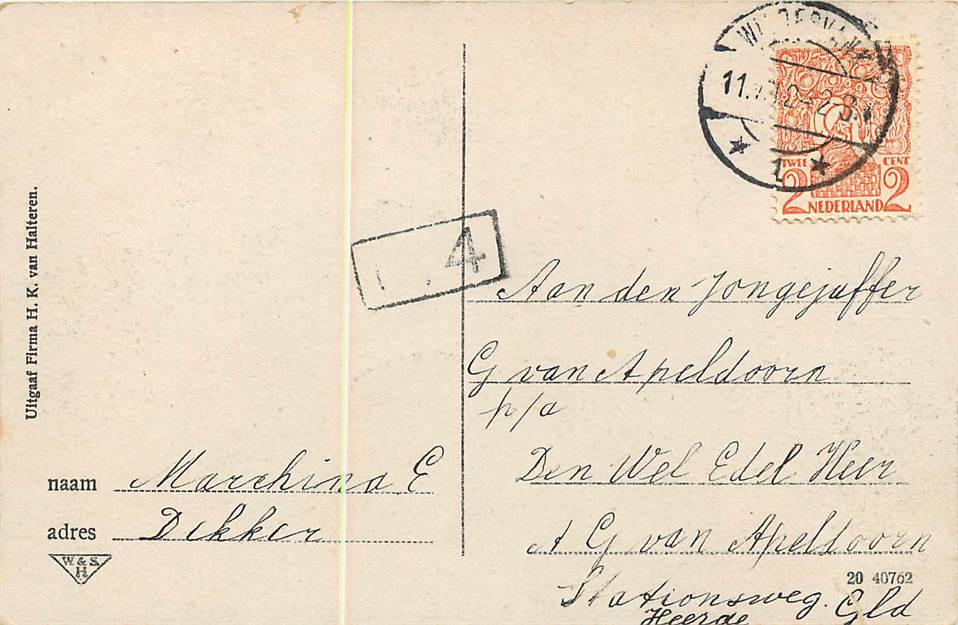 Uitgaaf Firma H. K. van Halteren.
naam Marchina E
adres Dekker
W. & S.
H
4
11. 2 8.
1
TWEE CENT
2 NEDERLAND 2
Aan den Jongejuffer
G van Apeldoorn
p/a
Den Wel Edel Heer
A G van Apeldoorn
20 40762
Stationsweg. Gld
Heerde